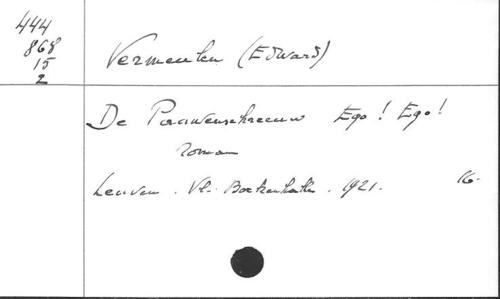 444
868
15
2
Vermeulen (Edward)
De Pauwenschreeuw Ego! Ego!
roman
Leuven. Vl. Boekenhalle. 1921. 16-